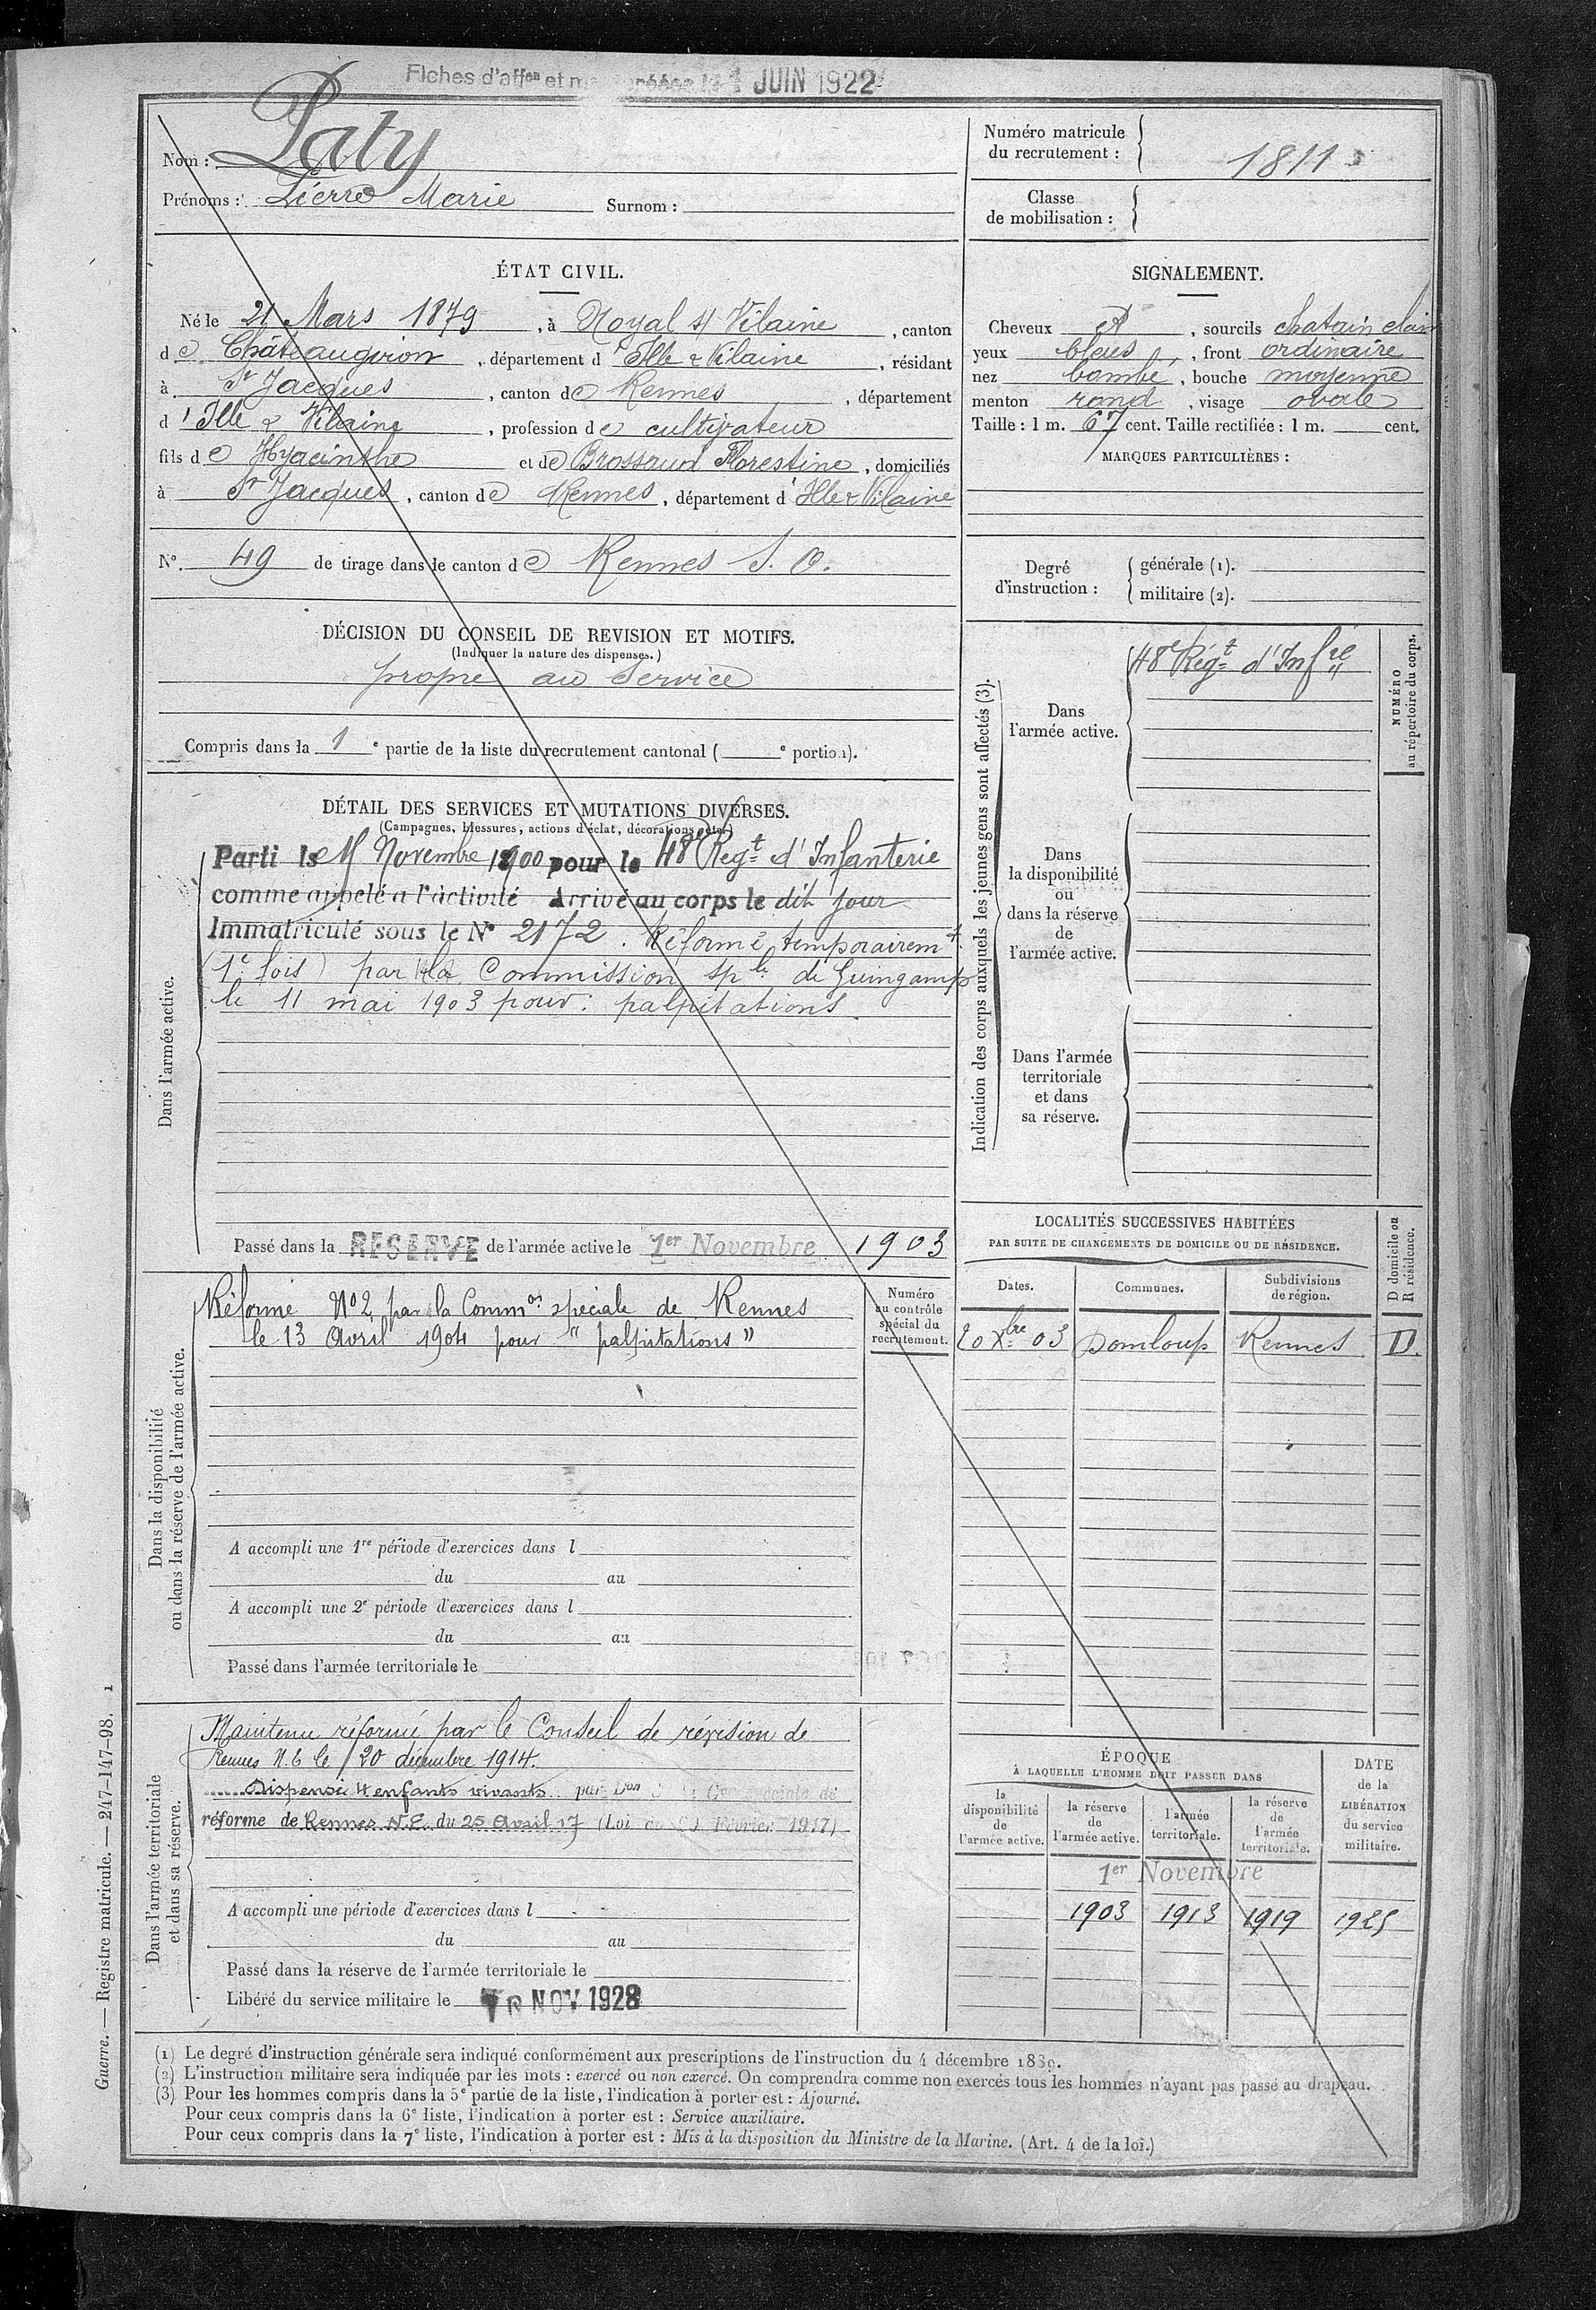 Fiches d'affon et JUIN 1922
Nom : Laty
Prénoms : Pierre Marie Surnom :
Numéro matricule du recrutement : 1811
Classe de mobilisation :
ÉTAT CIVIL.
Né le 21 Mars 1879, à Noyal s/ Vilaine, canton
de Châteaugiron, département d'Ille & Vilaine, résidant
à St Jacques, canton de Rennes, département
d'Ille & Vilaine, profession de cultivateur
fils de Hyacinthe et de Brossaud Florestine, domiciliés
à St Jacques, canton de Rennes, département d'Ille & Vilaine
N° 49 de tirage dans le canton de Rennes S. O.
SIGNALEMENT.
Cheveux et, sourcils chatain clair
yeux bleus, front ordinaire
nez bombé, bouche moyenne
menton rond, visage ovale
Taille : 1 m. 67 cent. Taille rectifiée : 1 m. cent.
MARQUES PARTICULIÈRES :
Degré d'instruction : générale (1).
militaire (2).
DÉCISION DU CONSEIL DE REVISION ET MOTIFS.
(Indiquer la nature des dispenses.)
propre au service
Compris dans la 1e partie de la liste du recrutement cantonal ( e portion).
DÉTAIL DES SERVICES ET MUTATIONS DIVERSES.
(Campagnes, blessures, actions d'éclat, décorations, etc.)
Dans l'armée active.
Parti le 15 Novembre 1900 pour le 48e Régt d'Infanterie
comme appelé à l'activité Arrivé au corps le dit jour
Immatriculé sous le N° 2172. Réformé temporairemt
(1e fois) par la Commission sple de Guingamp
le 11 mai 1903 pour : palpitations.
Passé dans la RESERVE de l'armée active le 1er Novembre 1903
Indication des corps auxquels les jeunes gens sont affectés (3).
Dans l'armée active.
48e Régt d'Infie
NUMÉRO au répertoire du corps.
Dans la disponibilité ou dans la réserve de l'armée active.
Dans l'armée territoriale et dans sa réserve.
Dans la disponibilité ou dans la réserve de l'armée active.
Réformé N°2 par la Common spéciale de Rennes
le 13 Avril 1904 pour "palpitations"
Numéro au contrôle spécial du recrutement.
A accompli une 1re période d'exercices dans l
du au
A accompli une 2e période d'exercices dans l
du au
Passé dans l'armée territoriale le
LOCALITÉS SUCCESSIVES HABITÉES
PAR SUITE DE CHANGEMENTS DE DOMICILE OU DE RÉSIDENCE.
Dates. Communes. Subdivisions de région. D domicile ou R résidence.
20 Xbre 03 Domloup Rennes D.
Dans l'armée territoriale et dans sa réserve.
Maintenu réformé par le Conseil de révision de
Rennes N.E le 20 décembre 1914.
Dispensé 4 enfants vivants par Don spéciale de
réforme de Rennes N.E. du 25 Avril 17 (Loi Février 1917)
A accompli une période d'exercices dans l
du au
Passé dans la réserve de l'armée territoriale le
Libéré du service militaire le NOV 1928
ÉPOQUE
À LAQUELLE L'HOMME DOIT PASSER DANS
la disponibilité de l'armée active. la réserve de l'armée active. l'armée territoriale. la réserve de l'armée territoriale.
DATE de la LIBÉRATION du service militaire.
1er Novembre
1903 1913 1919 1925
(1) Le degré d'instruction générale sera indiqué conformément aux prescriptions de l'instruction du 4 décembre 1889.
(2) L'instruction militaire sera indiquée par les mots : exercé ou non exercé. On comprendra comme non exercés tous les hommes n'ayant pas passé au drapeau.
(3) Pour les hommes compris dans la 5e partie de la liste, l'indication à porter est : Ajourné.
Pour ceux compris dans la 6e liste, l'indication à porter est : Service auxiliaire.
Pour ceux compris dans la 7e liste, l'indication à porter est : Mis à la disposition du Ministre de la Marine. (Art. 4 de la loi.)
Guerre. — Registre matricule. — 247-147-98. 1